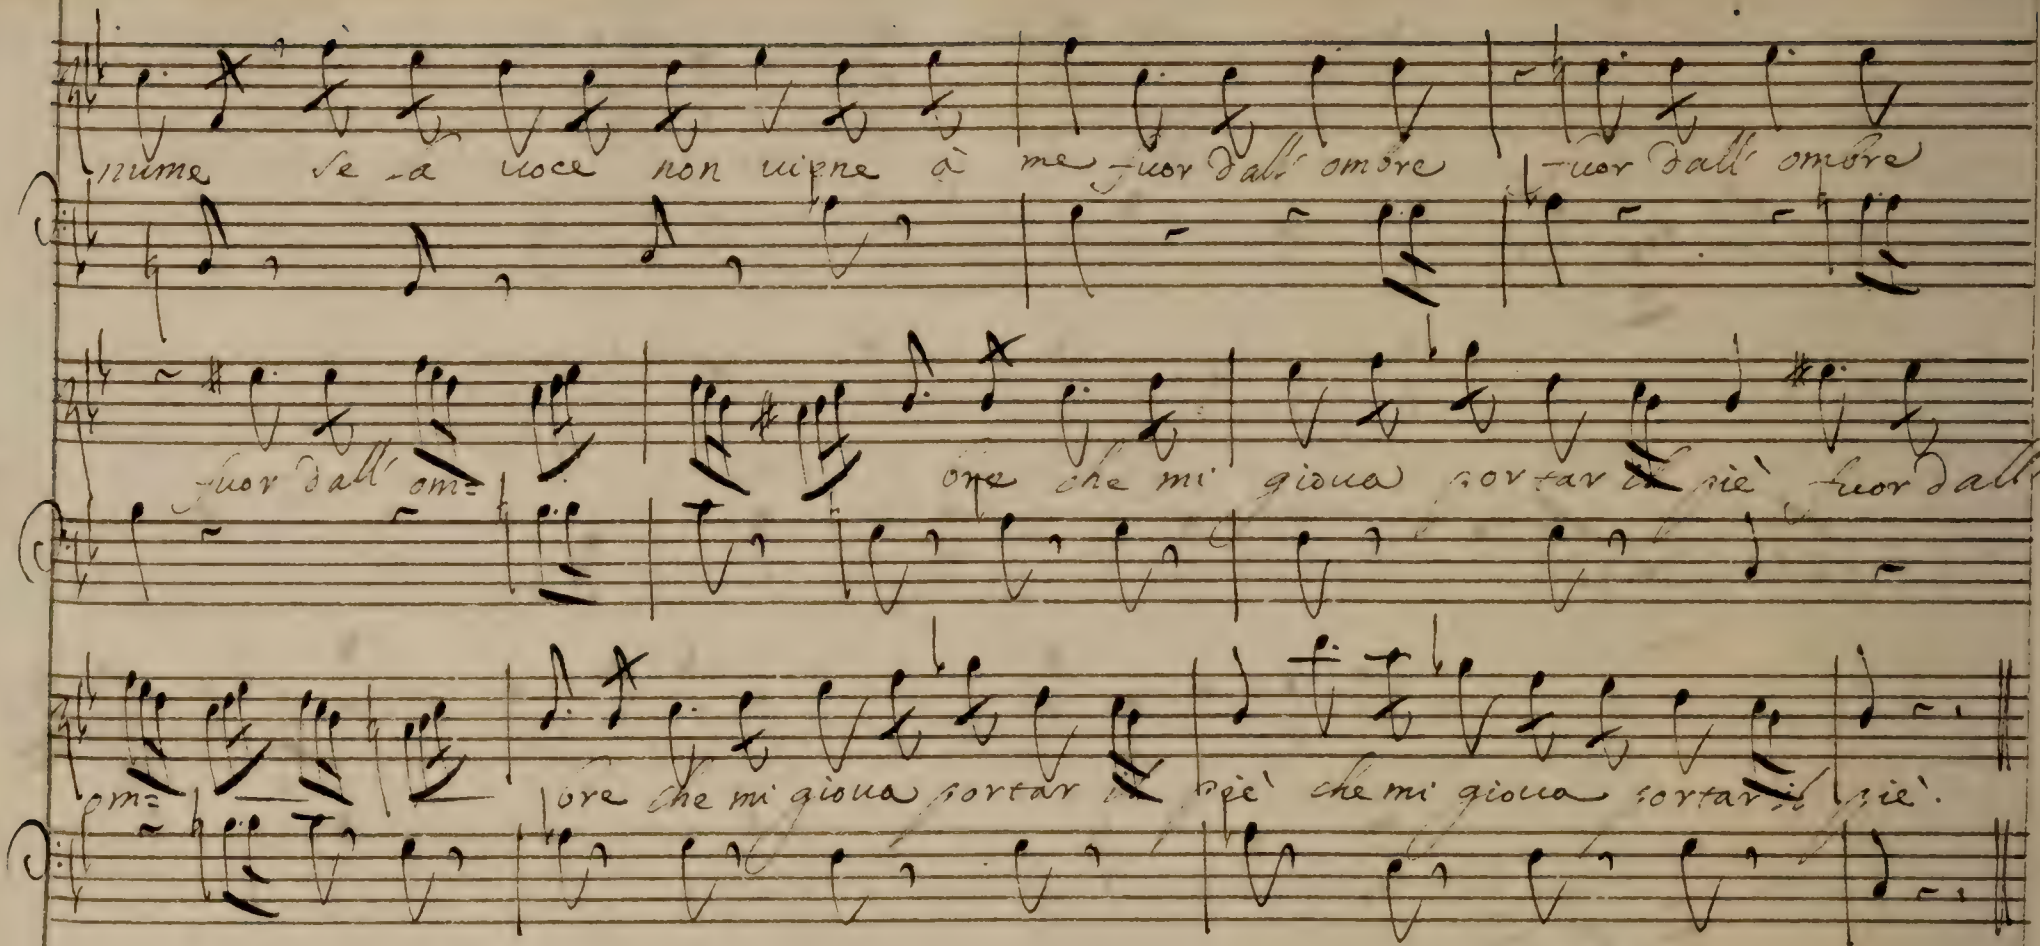 nume se -a uoce non uiene à me fuor dall' ombre fuor dall' ombre
fuor dall' om= bre che mi gioua portar il piè fuor dall'
om= bre che mi gioua portar il piè che mi gioua portar il piè.